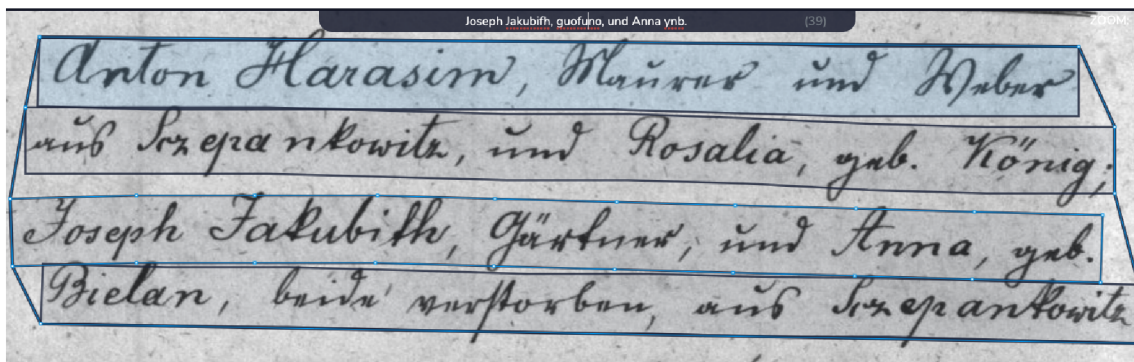 Joseph Jakubifh, guofuno, und Anna ynb. (39)
ZOOM:
Anton Harasim, Maurer und Weber
aus Sczepankowitz, und Rosalia, geb. König;
Joseph Jakubith, Gärtner, und Anna, geb.
Bielan, beide verstorben, aus Sczepankowitz